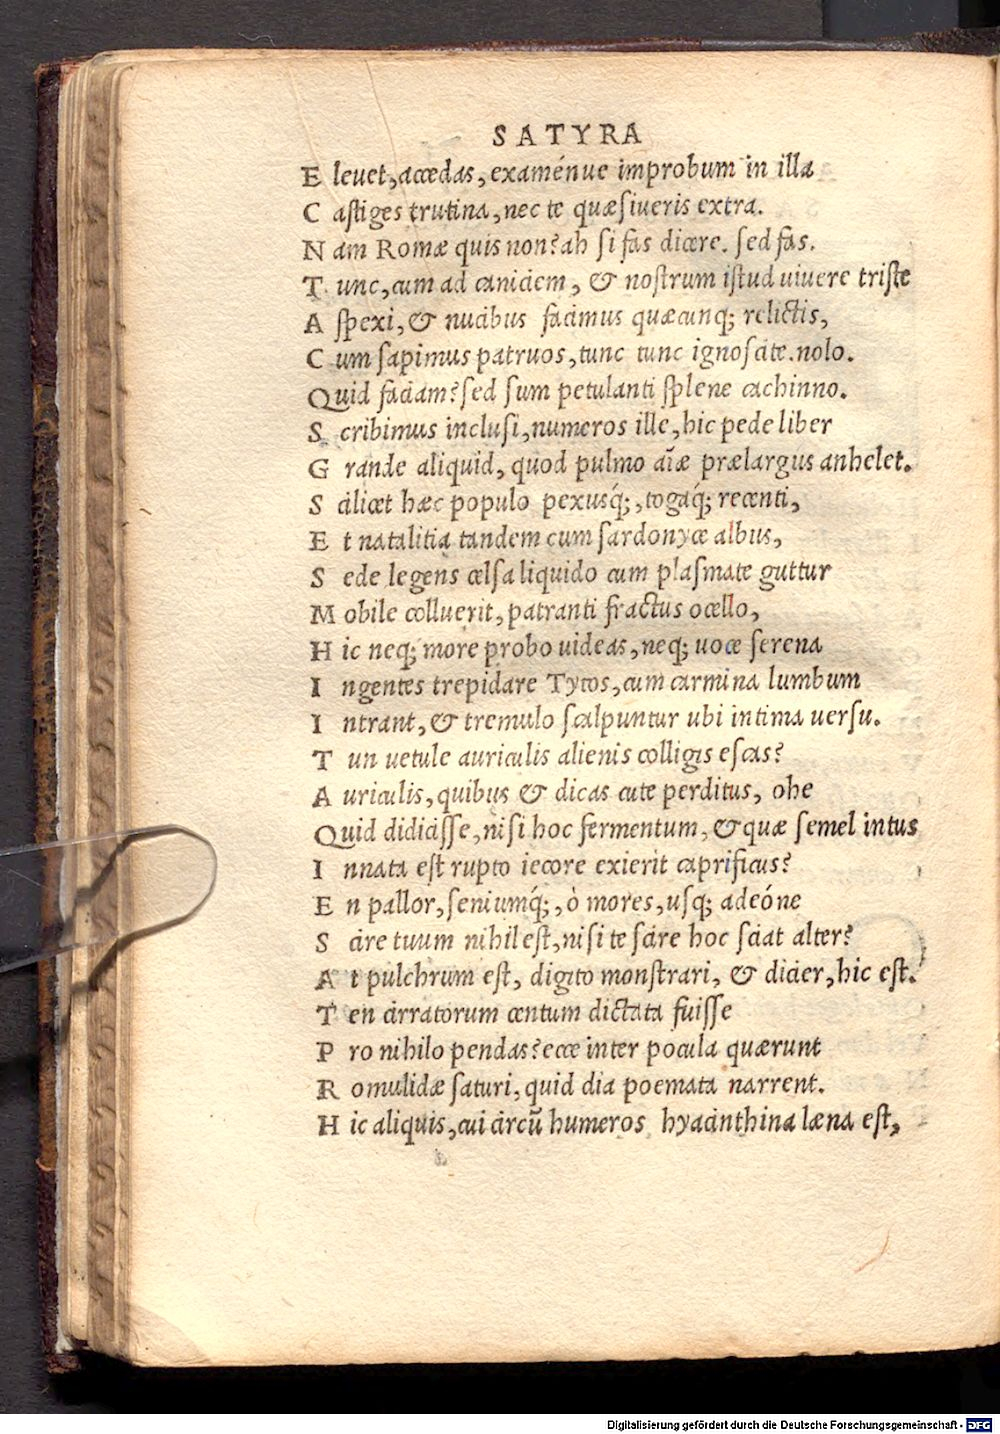 SATYRA
E leuet, accedas, examénue improbum in illa
C astiges trutina, nec te quæsiueris extra.
N am Romæ quis non? ah si fas dicere. sed fas.
T unc, cum ad caniciem, & nostrum istud uiuere triste
A spexi, & nucibus facimus quæcunq; relictis,
C um sapimus patruos, tunc tunc ignoscite. nolo.
Quid faciam? sed sum petulanti splene cachinno.
S cribimus inclusi, numeros ille, hic pede liber
G rande aliquid, quod pulmo aīæ prælargus anhelet.
S cilicet hæc populo pexusq́;, togaq́; recenti,
E t natalitia tandem cum sardonyce albus,
S ede legens celsa liquido cum plasmate guttur
M obile colluerit, patranti fractus ocello,
H ic neq; more probo uideas, neq; uoce serena
I ngentes trepidare Tytos, cum carmina lumbum
I ntrant, & tremulo scalpuntur ubi intima uersu.
T un uetule auriculis alienis colligis escas?
A uriculis, quibus & dicas cute perditus, ohe
Quid didicisse, nisi hoc fermentum, & quæ semel intus
I nnata est rupto iecore exierit caprificus?
E n pallor, seniumq́;, ò mores, usq; adeóne
S cire tuum nihil est, nisi te scire hoc sciat alter?
A t pulchrum est, digito monstrari, & dicier, hic est.
T en cirratorum centum dictata fuisse
P ro nihilo pendas? ecce inter pocula quærunt
R omulidæ saturi, quid dia poemata narrent.
H ic aliquis, cui circū humeros hyacinthina læna est,
Digitalisierung gefördert durch die Deutsche Forschungsgemeinschaft - DFG